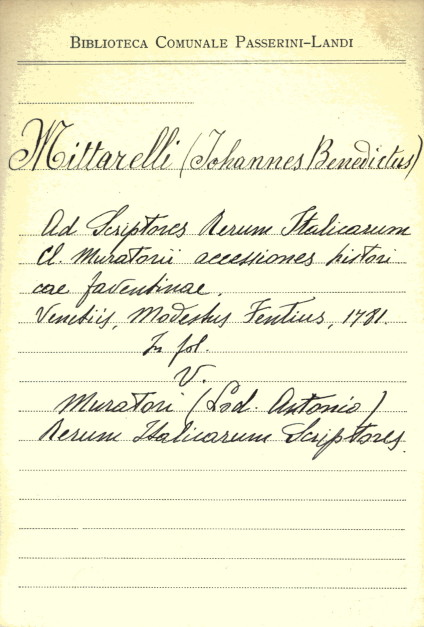 BIBLIOTECA COMUNALE PASSERINI-LANDI
Mittarelli (Johannes Benedictus)
Ad Scriptores Rerum Italicarum
Cl. Muratorii accessiones histori
cae faventinae.
Venetiis, Modestus Fentius, 1781.
In fol.
V.
Muratori (Lod. Antonio)
Rerum Italicarum Scriptores.